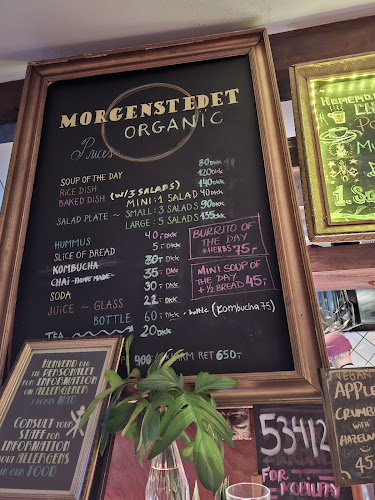 MORGENSTEDET
ORGANIC
Prices
SOUP OF THE DAY 80 DKK
RICE DISH 120 DKK
BAKED DISH (W/3 SALADS) 140 DKK
MINI: 1 SALAD 40 DKK
SALAD PLATE ~ SMALL: 3 SALADS 90 DKK
LARGE: 5 SALADS 135 DKK
HUMMUS 40 DKK
SLICE OF BREAD 5 DKK
KOMBUCHA 30 DKK
CHAI HOME MADE 35 DKK
SODA 30 DKK
JUICE ~ GLASS 22 DKK
BOTTLE 60 DKK
TEA 20 DKK
BURRITO OF
THE DAY
+HERBS 75,-
MINI SOUP OF
THE DAY
+ ½ BREAD 45,-
bottle (Kombucha 75)
400 VARM RET 650,-
HENVEND DIG
TIL PERSONALET
FOR INFORMATION
OM ALLERGENER
I VORES MAD
CONSULT OUR
STAFF FOR
INFORMATION
ALLERGENS
IN OUR FOOD
53412
FOR
MOBILITY
VEGAN
APPLE
CRUMBLE
WITH
HAZELNU
45
HOMEMADE
1.